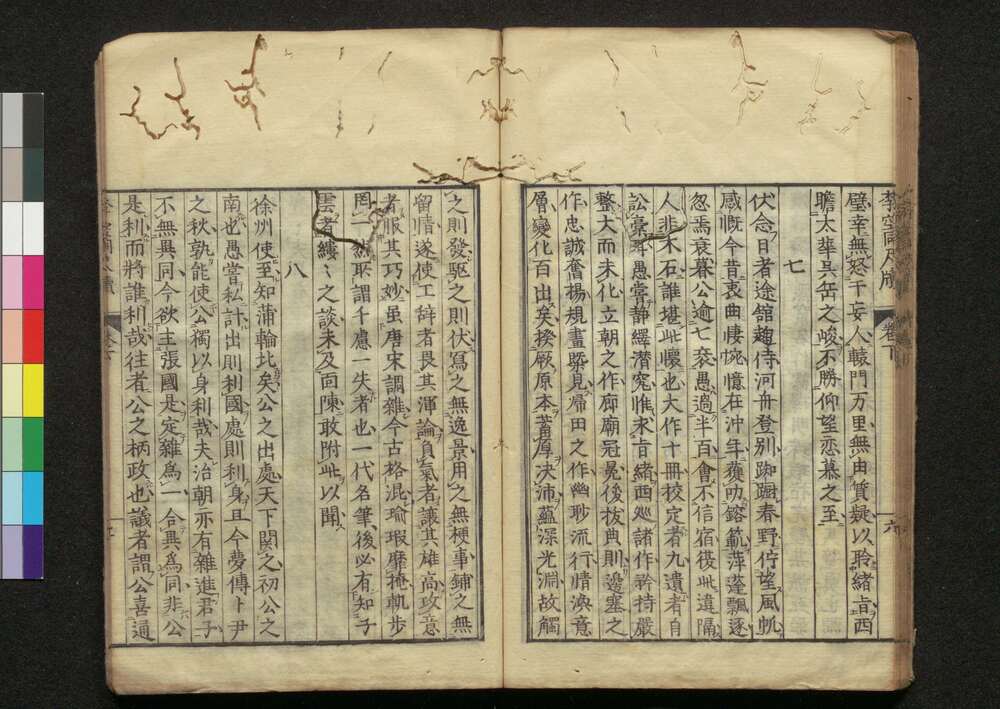 李空同尺牘 卷下 六
璧幸無怒于妄人轅門万里無由質疑以聆緒旨西
瞻太華具缶之峻不勝仰望恋慕之至
七
伏念日者途館趨侍河舟登別踟蹰春野佇望風帆
感慨今昔衷曲悽惋憶在沖年獲叨鎔範萍蓬飄逐
忽焉衰暮公逾七袠愚過半百會不信宿筱此遠隔
人非木石誰堪此懷也大作十冊校定者九遺者自
訟毫釐愚嘗静繹潜究惟求旨緒西巡諸作矜持嚴
整大而未化立朝之作廊廟冠冕後拔典則邊塞之
作忠誠奮揚規畫槩見帰田之作幽眇流行情渙意
層變化百出矣揆厥原本蓄厚决沛蘊深光淵故觸
之則發驅之則伏寫之無逸景用之無梗事鋪之無
留情遂使工辞者畏其渾論負氣者讓其雄高攻意
者服其巧妙虽唐宋調雜今古格混瑜瑕靡掩軌步
罔一烝耿謂千慮一失者也一代名筆後必有知子
雲者縷〻之談未及面陳敢附此以聞
八
徐州使至知蒲輪北矣公之出處天下関之初公之
南也愚嘗私計出則利國處則利身且今夢傅卜尹
之秋孰能使公獨以身利哉夫治朝亦有雜進君子
不無異同今欲主張國是定雜爲一合異爲同非公
是利而將誰利哉往者公之柄政也議者謂公喜通